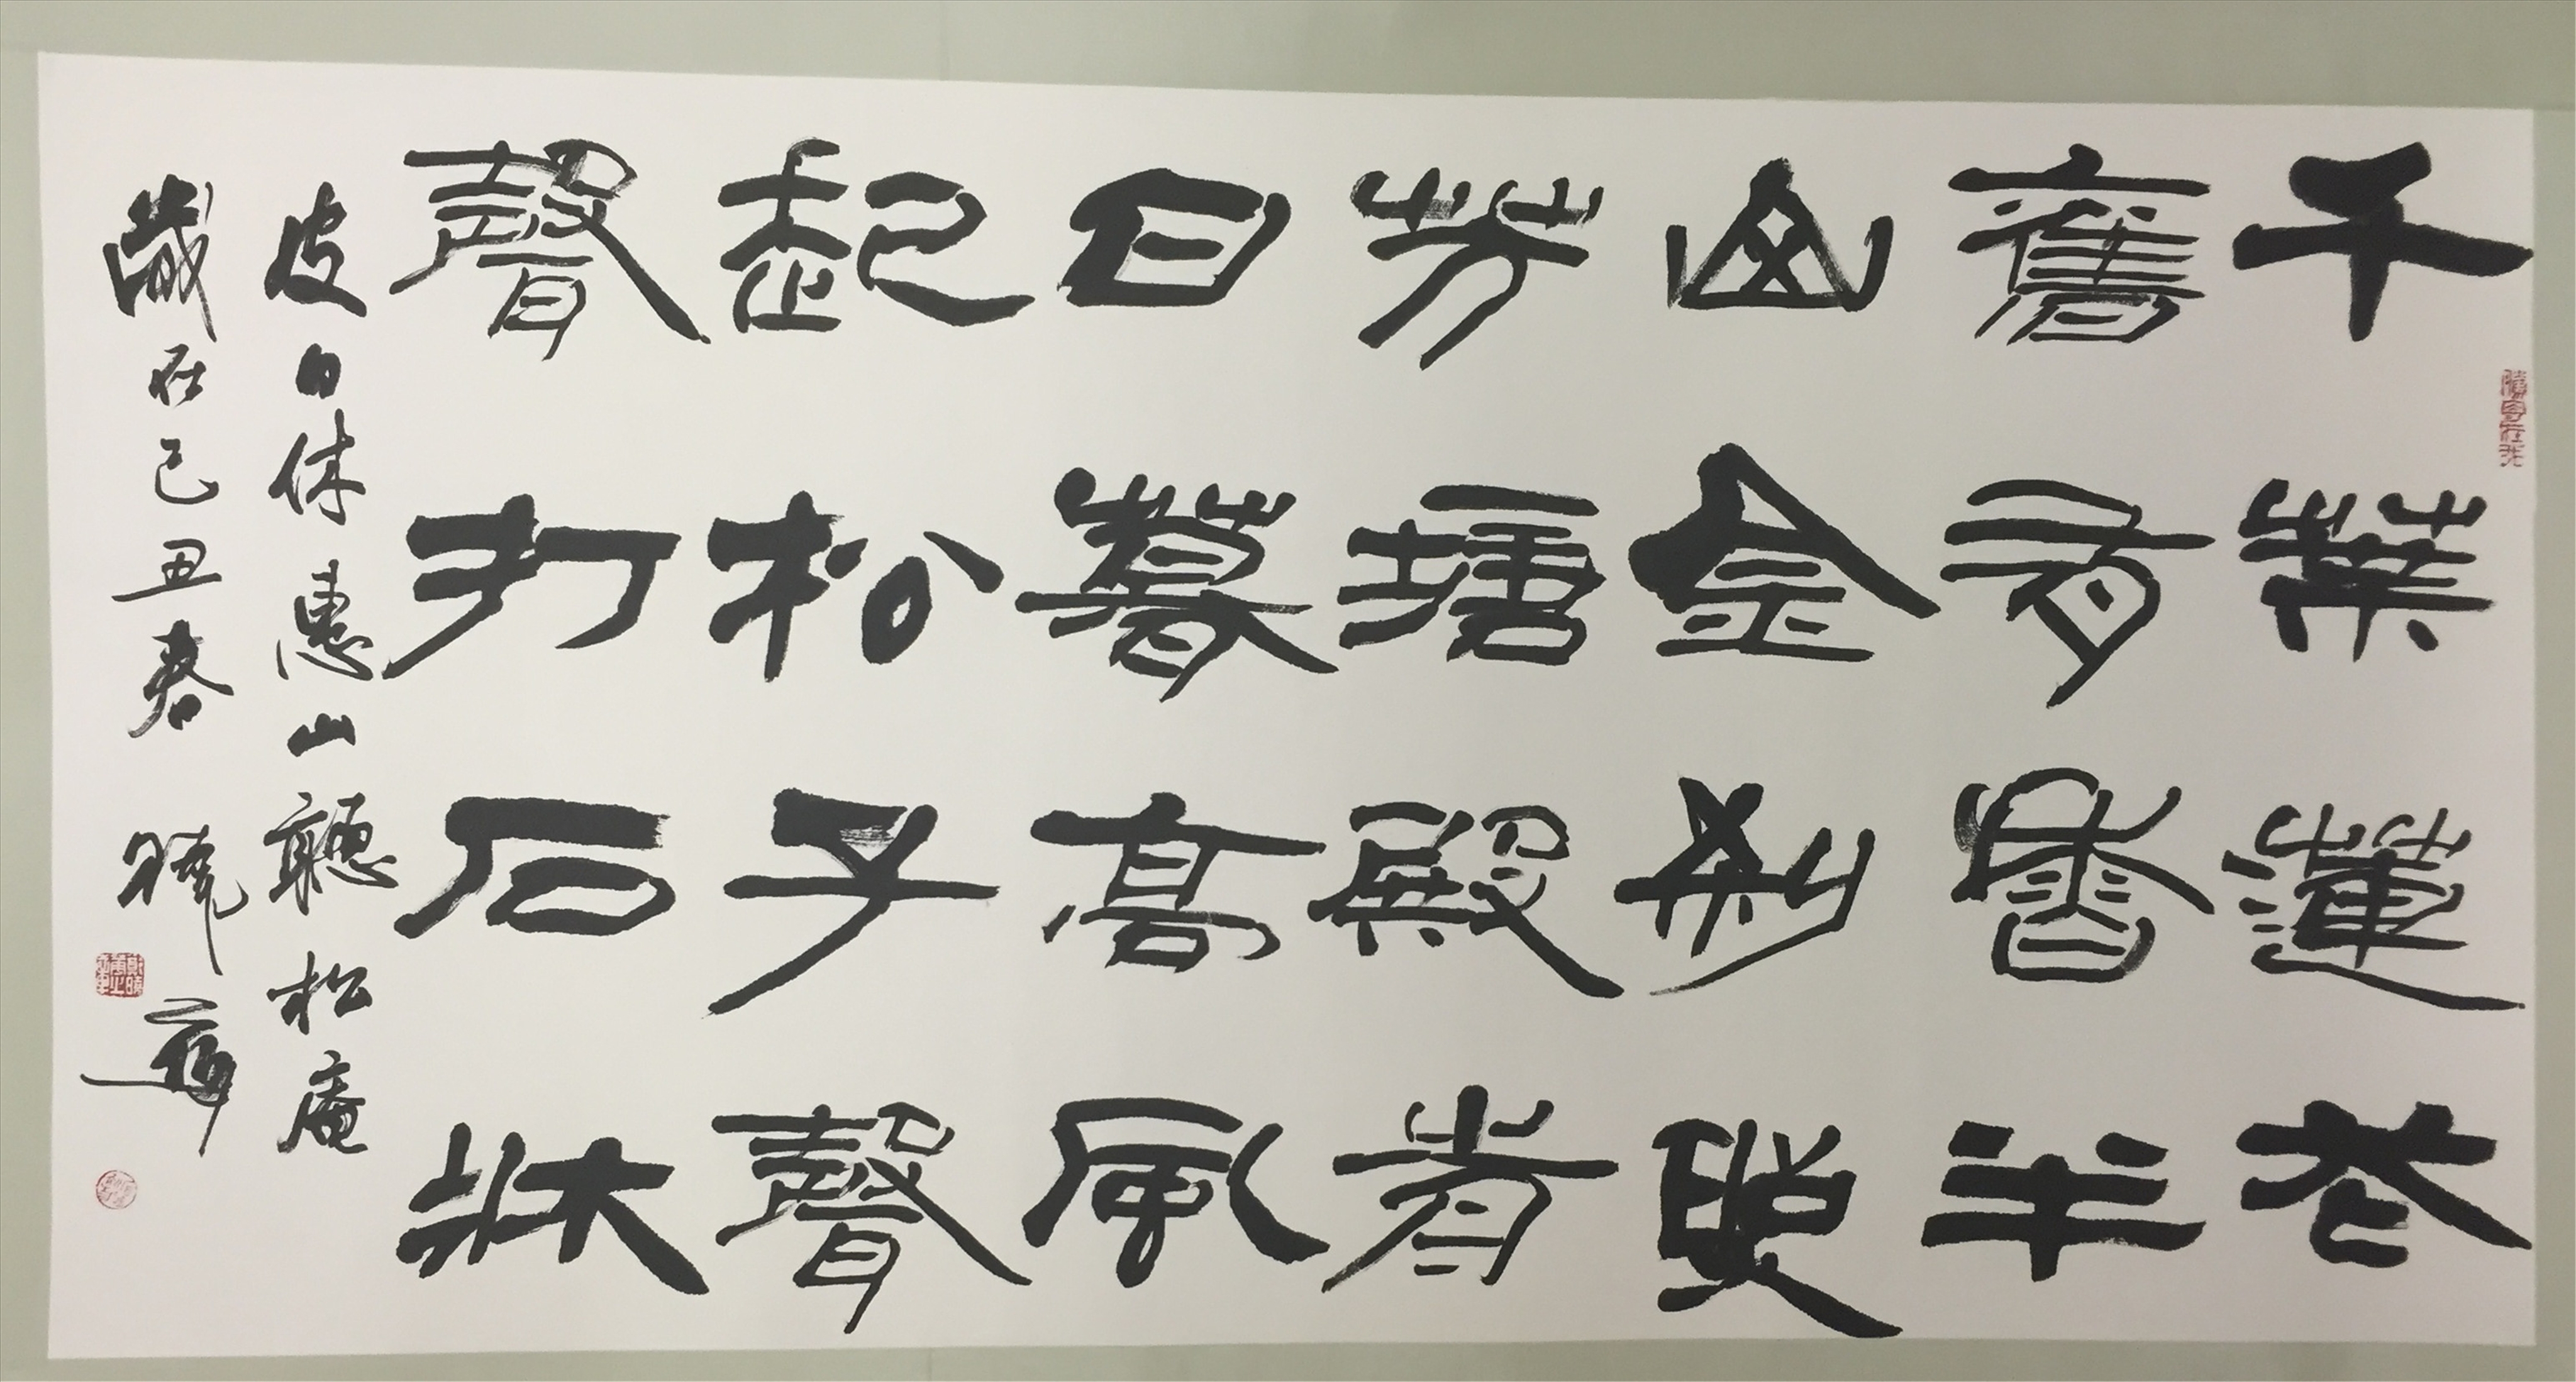 千葉蓮花
舊有香半
山金刹照
芳塘殿前
日暮高風
起松子聲
聲打石牀
皮日休惠山聽松庵
歲在己丑春 曉華